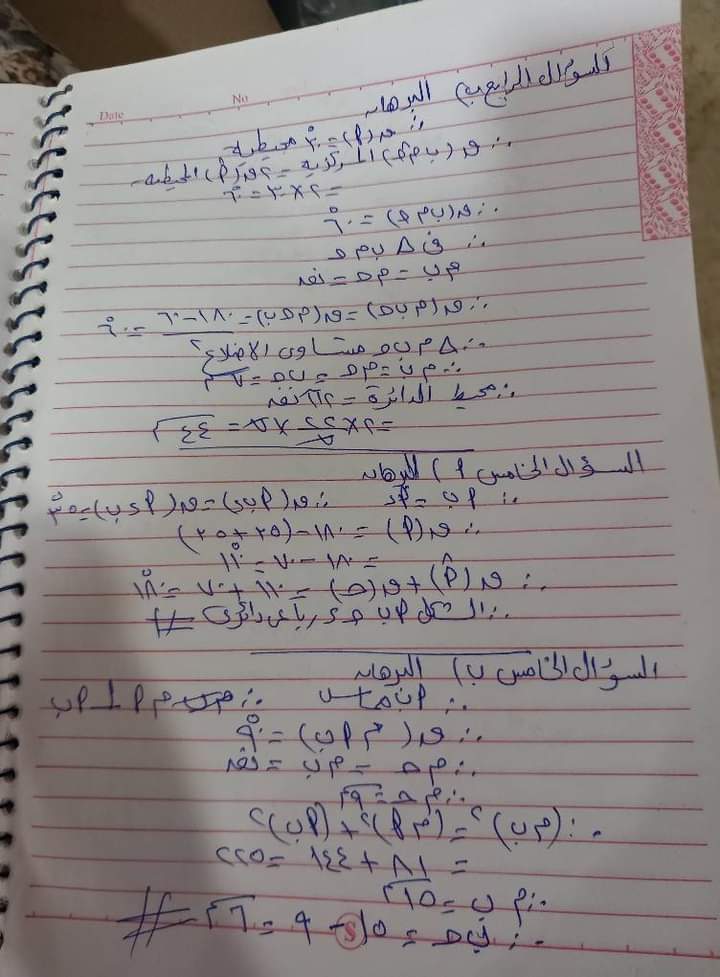 Date
No
السؤال الرابع ب) البرهان
∵ ق(P) = ٣٠° محيطية
∴ ق(ب م ج) المركزية = ٢ ق(P) المحيطية
= ٢ × ٣٠ = ٦٠°
∴ ق(ب م ج) = ٦٠°
∵ في Δ ب م ج
م ب = م ج = نق
∴ ق(م ب ج) = ق(م ج ب) = ١٨٠ - ٦٠ = ٦٠°
∴ Δ م ب ج متساوى الاضلاع
∴ م ب = م ج = ب ج = ٧ م
∴ محيط الدائرة = ٢ π نق
= ٢ × ٢٢/٧ × ٧ = ٤٤ م
السؤال الخامس P) البرهان
∵ P ب = P د ∴ ق(P ب د) = ق(P د ب) = ٣٥°
∴ ق(P) = ١٨٠ - (٣٥ + ٣٥)
= ١٨٠ - ٧٠ = ١١٠°
∴ ق(P) + ق(ج) = ١١٠ + ٧٠ = ١٨٠°
∴ الشكل P ب ج د رباعى دائرى #
السؤال الخامس ب) البرهان
∵ P ب مماس ∴ م P ⊥ P ب
∴ ق(م P ب) = ٩٠°
∴ م ج = ٩ م
∴ (م ب)² = (م P)² + (P ب)²
= ٨١ + ١٤٤ = ٢٢٥
∴ م ب = ١٥ م
∴ ب ج = ١٥ - ٩ = ٦ م #
S